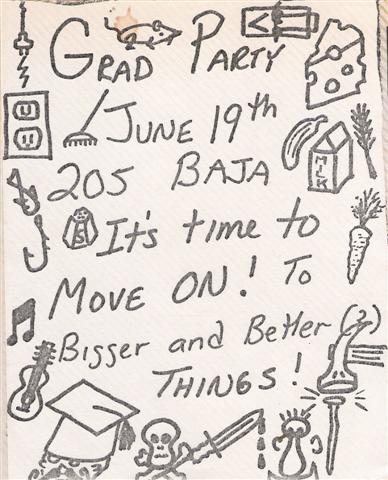 GRAD PARTY
JUNE 19th
205 BAJA
MILK
S
It's time to
MOVE ON! TO
Bigger and Better (?)
THINGS!